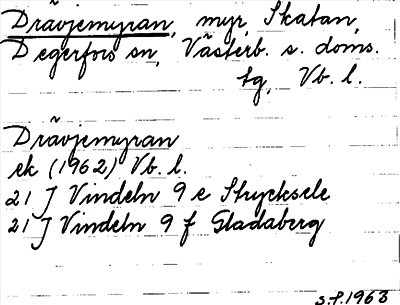 Drävjemyran, myr, Skatan,
Degerfors sn, Västerb. s. doms.
tg, Vb. l.
Drävjemyran
ek (1962) Vb. l.
21 J Vindeln 9 e Strycksele
21 J Vindeln 9 f Gladaberg
S.F. 1963